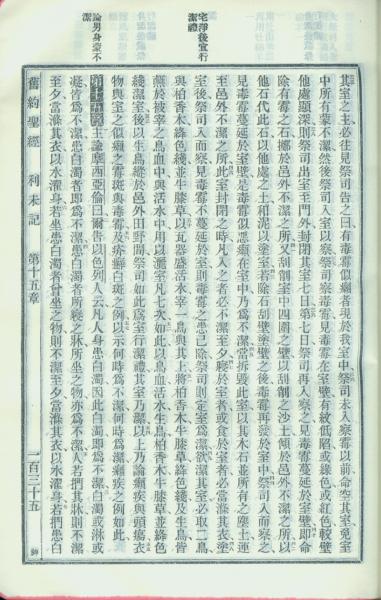 宅淨後宜行
潔禮
論男身蒙不
潔
其室之主必往見祭司告之曰有毒霉似癩者現於我室中祭司未入察霉以前命空其室免室
中所有蒙不潔然後祭司入室以察祭司察毒霉見毒霉在室壁有紋低陷或綠色或紅色較壁
他處顯深則祭司出室至門外封閉其室七日第七日祭司再入察之見毒霉蔓延於室壁即命
除有霉之石擲於邑外不潔之所又刮剖室中四圍之壁以刮剖之沙土傾於邑外不潔之所以
他石代此石以他處之土和泥以塗室若除石刮壁塗壁之後毒霉再發於室中祭司入而察之
見毒霉蔓延於室壁是毒霉似惡癩在室中乃爲不潔當拆毀此室以其木石並所有之塵土運
至邑外不潔之所此室封閉之時凡入之者必不潔至夕寢於室者或食於室者必當滌其衣塗
室後祭司入而察見毒霉不蔓延於室則毒霉之患已除祭司則定室爲潔欲潔其室必取二鳥
與柏香木絳色綫並牛膝草以瓦器盛活水宰一鳥與其上將柏香木牛膝草絳色綫及生鳥皆
蘸於被宰之鳥血中與活水中用以灑室凡七次如此以鳥血活水生鳥柏香木牛膝草並絳色
綫潔室後以生鳥縱於邑外田野間祭司如此爲室行潔禮其室乃潔以上乃論癩疾與頭瘍衣
物與室之似癩之霉斑與毒霉及疥癬白斑之例以示何時爲不潔何時爲潔癩疾之例如此
第十五章 主諭摩西亞倫曰爾告以色列人云凡人身患白濁因此白濁即爲不潔白濁或淋或
凝皆爲不潔患白濁者即爲不潔患白濁者所寢之牀所坐之物亦爲不潔人若捫其牀則不潔
至夕當滌其衣以水濯身若坐患白濁者曾坐之物則不潔至夕當滌其衣以水濯身若捫患白
舊約聖經 利未記 第十五章 一百三十五